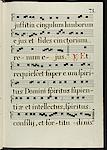 71
justitia cingulum lumborum
ejus: et fides cinctorium
renum e- jus. ℣. Et
requiescet super eum spiri-
tus Domini spiritus sapien-
tiæ et intellectus, spiritus
consilij, et for-titu-dinis.